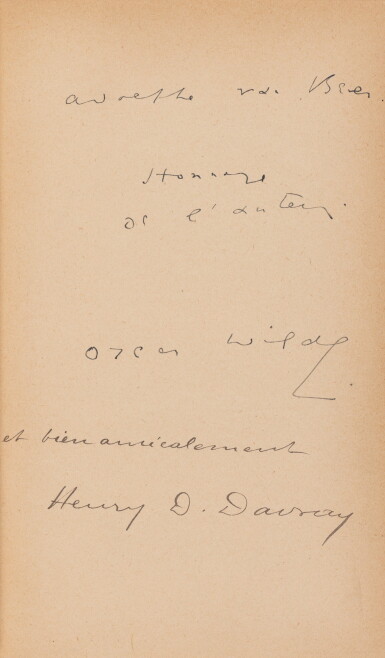 adolphe van Bever.
Hommage
de l'auteur.
Oscar Wilde
et bien amicalement
Henry D. Davray